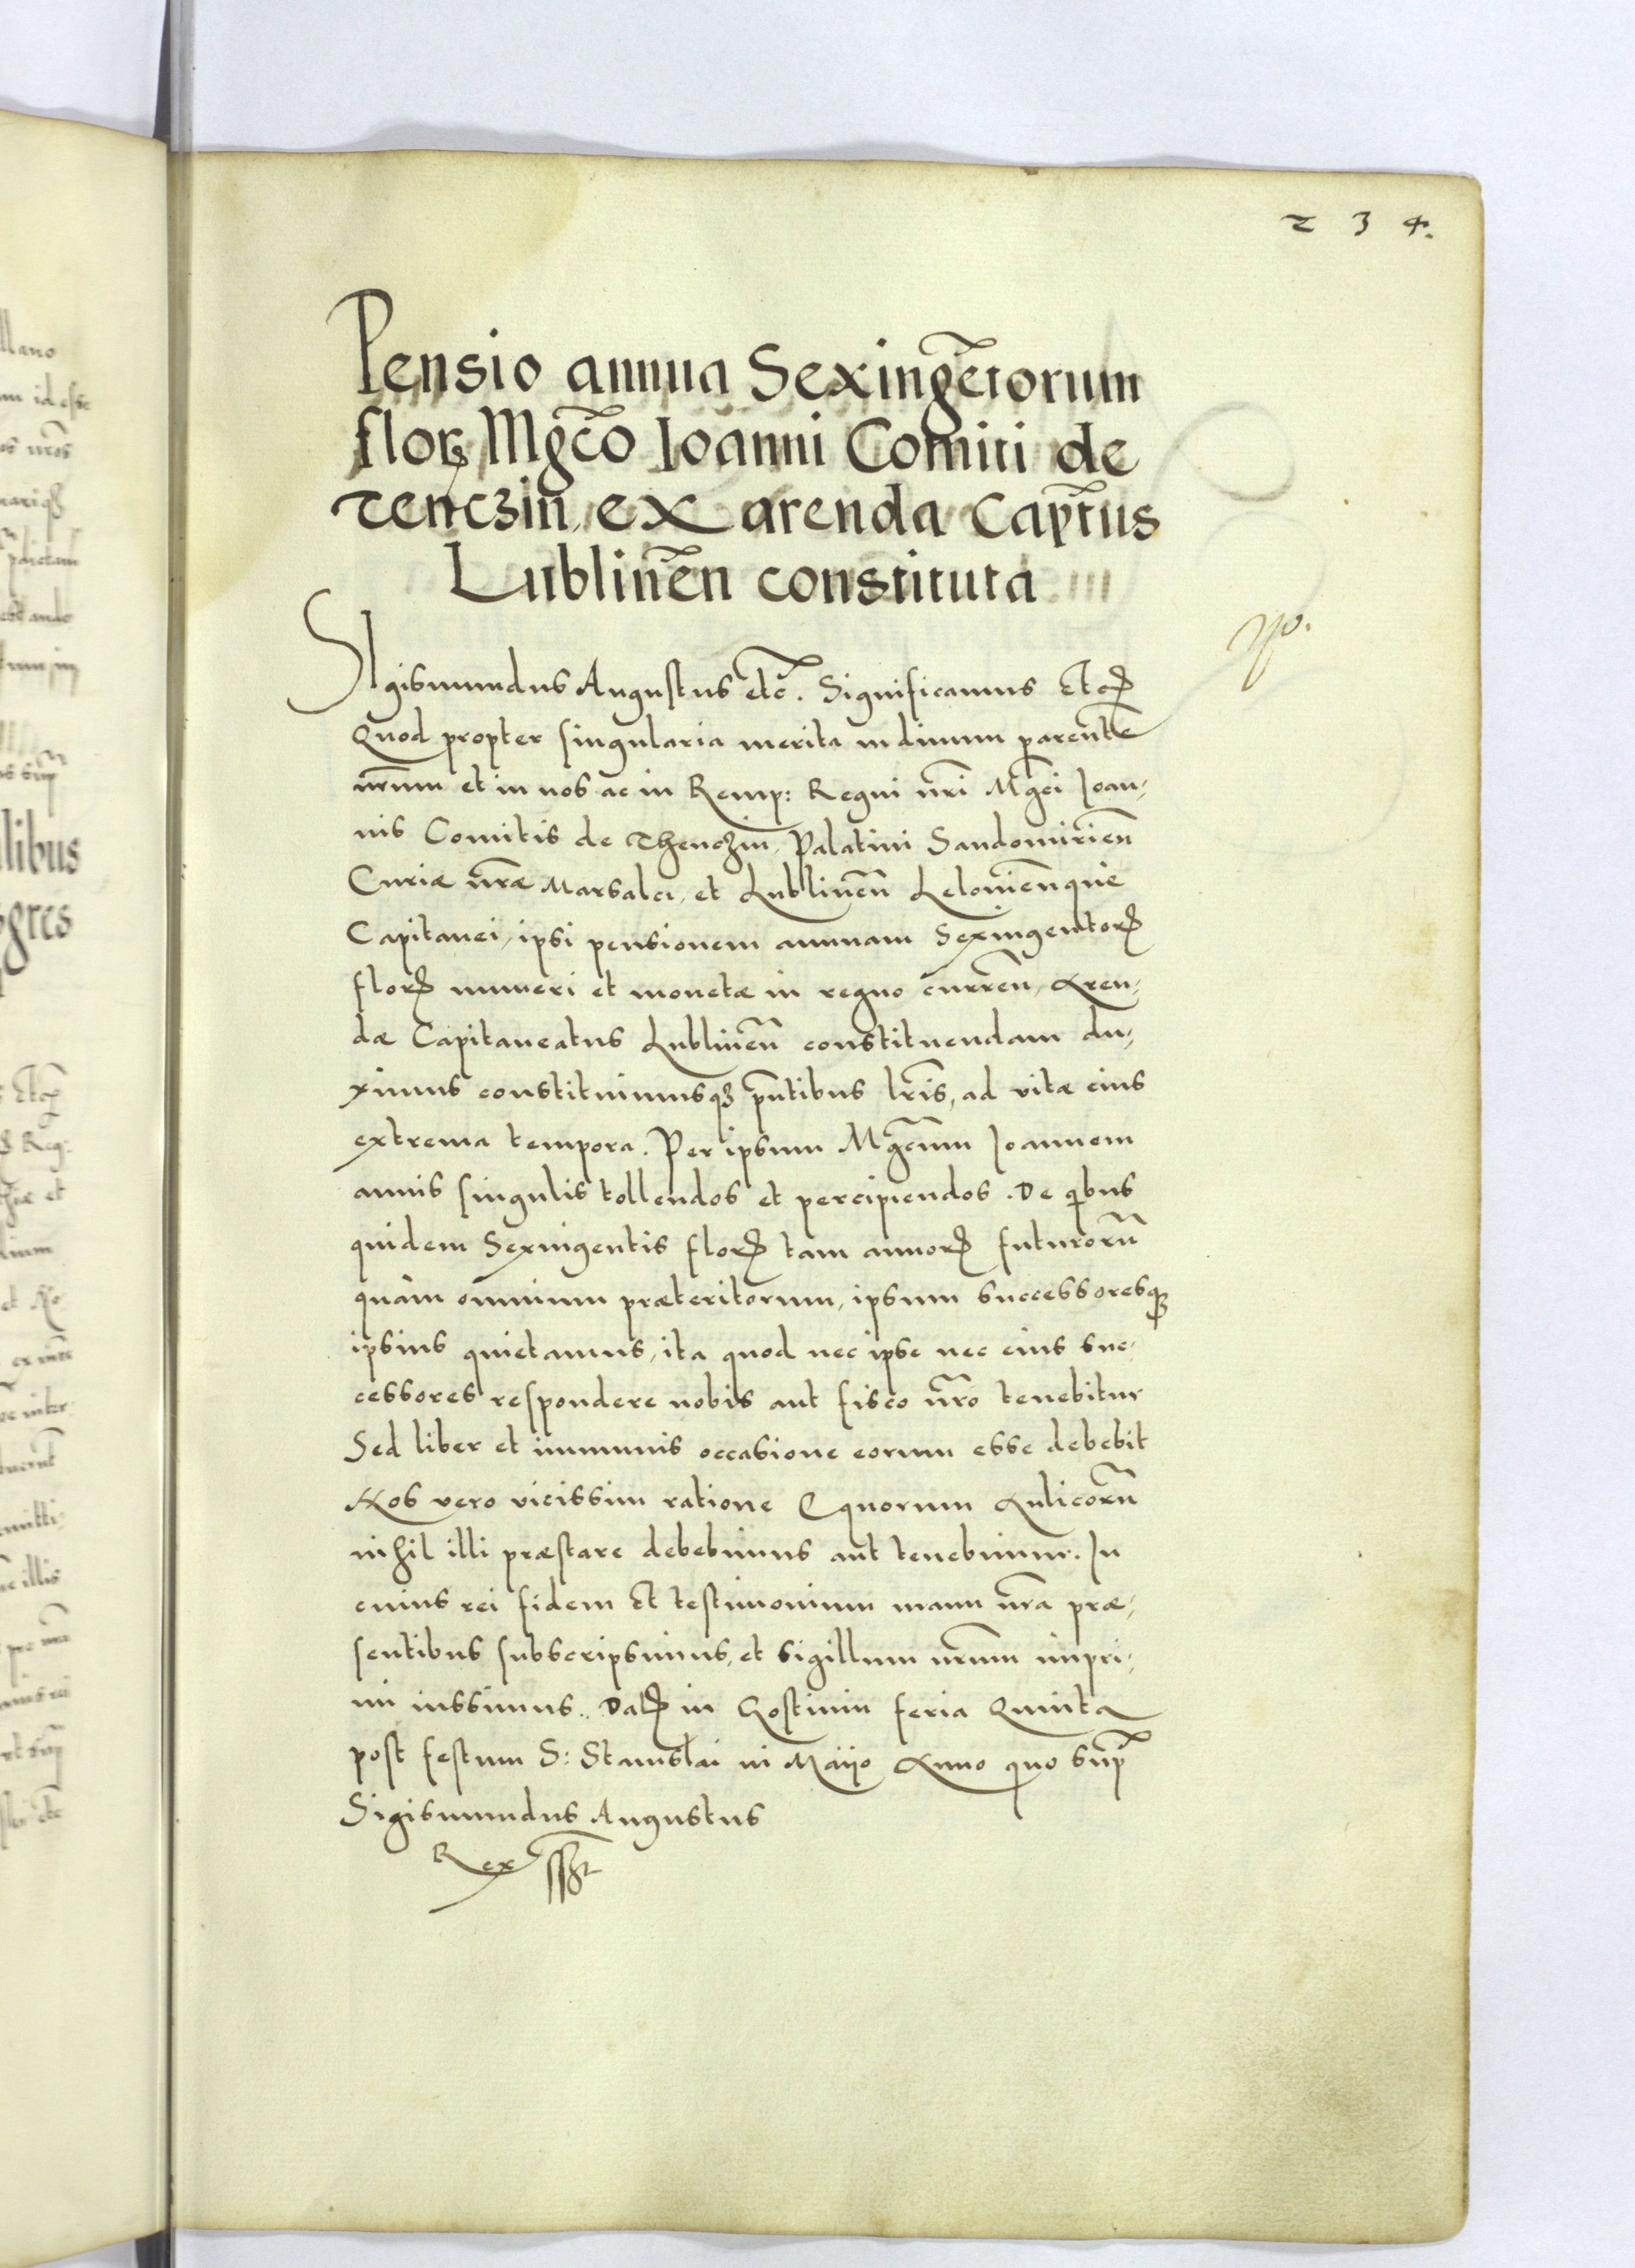 2 3 4.
Pensio annua Sexingẽtorum
florꝝ Mgc̃o Ioanni Comiti de
Tenczin, ex arenda Capt̃us
Lublineñ constituta
Sigismundus Augustus etc̃. Significamus Etcꝝ
Quod propter singularia merita in diuum parentẽ
nr̃um et in nos ac in Remp: Regni nr̃i Mgc̃i Ioan,
nis Comitis de Thenczin, Palatini Sandomirieñ
Curiæ nr̃æ Marsalci, et Lublineñ Lelouieñque
Capitanei, ipsi pensionem annuam Sexingentorꝝ
florꝝ numeri et monetæ in regno curreñ, Aren,
dæ Capitaneatus Lublineñ constituendam du,
ximus constituimusqꝫ pñtibus lr̃is, ad vitæ eius
extrema tempora. Per ipsum Mgc̃um Ioannem
annis singulis tollendos et percipiendos. De qibus
quidem Sexingentis florꝝ tam annorꝝ futurorũ
quàm omnium præteritorum, ipsum successoresqꝫ
ipsius quietamus, ita quod nec ipse nec eius suc,
cessores respondere nobis aut fisco nr̃o tenebitur
Sed liber et immunis occasione eorum esse debebit
Nos vero vicissim ratione Equorum Aulicorũ
nihil illi præstare debebimus aut tenebimur. In
cuius rei fidem Et testimonium manu nr̃a præ,
sentibus subscripsimus, et sigillum nr̃um impri,
mi iussimus. Datꝝ in Gostinin feria Quinta
post festum S: Stanislai in Maijo Anno quo sup̃
Sigismundus Augustus
Rex sst